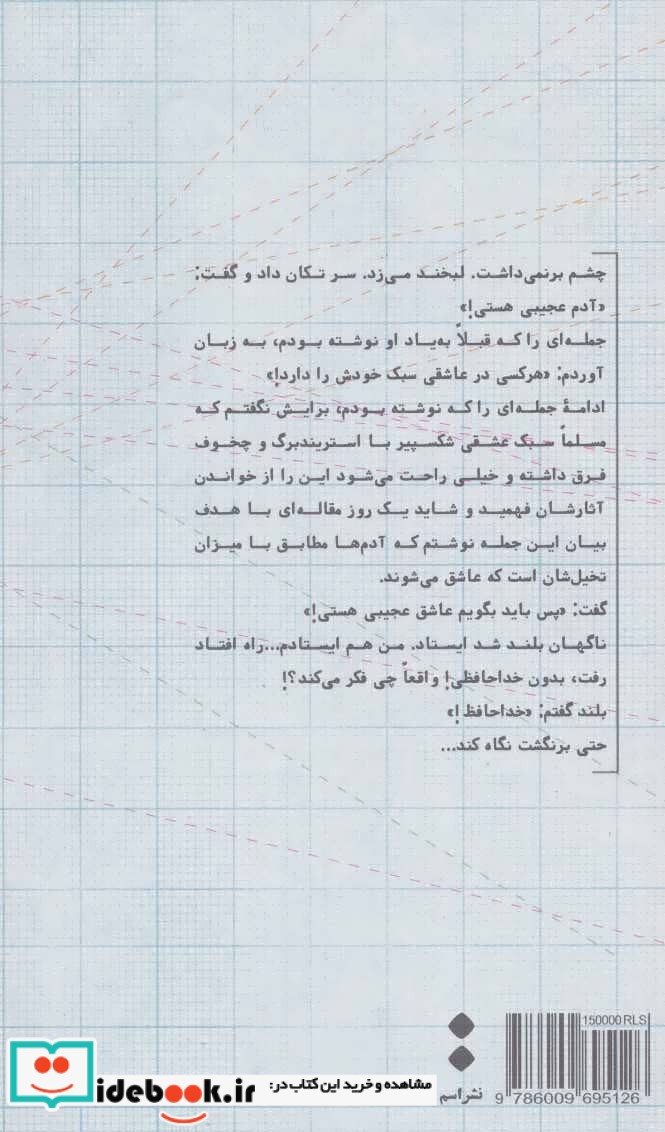 چشم برنمی‌داشت. لبخند می‌زد. سر تکان داد و گفت:
«آدم عجیبی هستی!»
جمله‌ای را که قبلاً به‌یاد او نوشته بودم، به زبان
آوردم: «هرکسی در عاشقی سبک خودش را دارد!»
ادامهٔ جمله‌ای را که نوشته بودم، برایش نگفتم که
مسلماً سبک عشقی شکسپیر با استریندبرگ و چخوف
فرق داشته و خیلی راحت می‌شود این را از خواندن
آثارشان فهمید و شاید یک روز مقاله‌ای با هدف
بیان این جمله نوشتم که آدم‌ها مطابق با میزان
تخیل‌شان است که عاشق می‌شوند.
گفت: «پس باید بگویم عاشق عجیبی هستی!»
ناگهان بلند شد ایستاد. من هم ایستادم...راه افتاد
رفت، بدون خداحافظی! واقعاً چی فکر می‌کند؟!
بلند گفتم: «خداحافظ!»
حتی برنگشت نگاه کند...
150000 RLS
9 786009 695126
نشر اسم
مشاهده و خرید این کتاب در:
idebook.ir